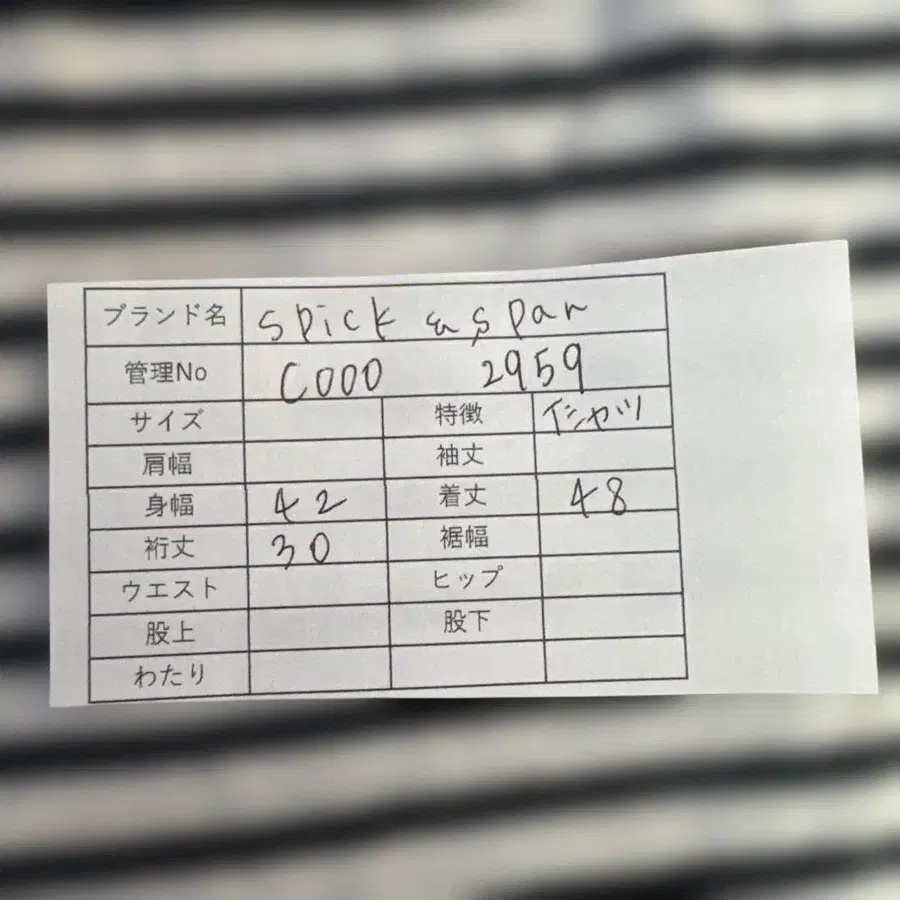 ブランド名 spick & span
管理No C000 2959
サイズ 特徴 Tシャツ
肩幅 袖丈
身幅 42 着丈 48
裄丈 30 裾幅
ウエスト ヒップ
股上 股下
わたり